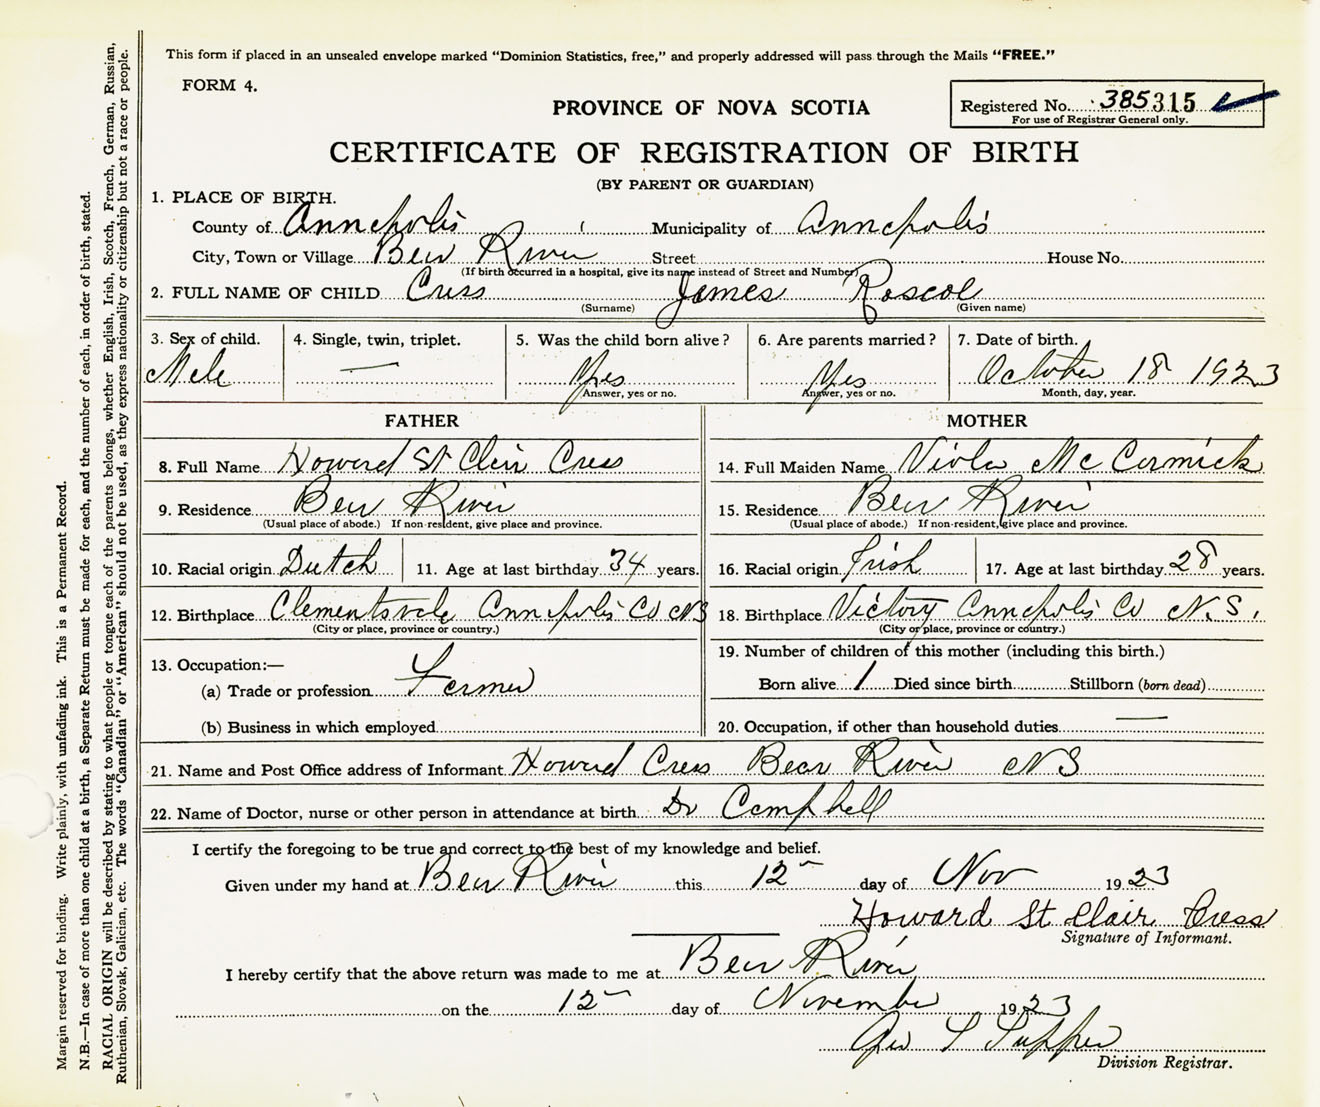 This form if placed in an unsealed envelope marked "Dominion Statistics, free," and properly addressed will pass through the Mails "FREE."
FORM 4.
PROVINCE OF NOVA SCOTIA
Registered No. 385315
For use of Registrar General only.
CERTIFICATE OF REGISTRATION OF BIRTH
(BY PARENT OR GUARDIAN)
1. PLACE OF BIRTH.
County of Annapolis Municipality of Annapolis
City, Town or Village Bear River Street House No.
(If birth occurred in a hospital, give its name instead of Street and Number)
2. FULL NAME OF CHILD Cress James Roscoe
(Surname) (Given name)
3. Sex of child. 4. Single, twin, triplet. 5. Was the child born alive? 6. Are parents married? 7. Date of birth.
Male — Yes Yes October 18 1923
Answer, yes or no. Answer, yes or no. Month, day, year.
FATHER MOTHER
8. Full Name Howard St Clair Cress 14. Full Maiden Name Viola McCormick
9. Residence Bear River 15. Residence Bear River
(Usual place of abode.) If non-resident, give place and province. (Usual place of abode.) If non-resident, give place and province.
10. Racial origin Dutch 11. Age at last birthday 34 years. 16. Racial origin Irish 17. Age at last birthday 28 years.
12. Birthplace Clementsvale Annapolis Co NS 18. Birthplace Victory Annapolis Co N.S.
(City or place, province or country.) (City or place, province or country.)
13. Occupation:— 19. Number of children of this mother (including this birth.)
(a) Trade or profession Farmer Born alive 1 Died since birth Stillborn (born dead)
(b) Business in which employed 20. Occupation, if other than household duties —
21. Name and Post Office address of Informant Howard Cress Bear River NS
22. Name of Doctor, nurse or other person in attendance at birth Dr Campbell
I certify the foregoing to be true and correct to the best of my knowledge and belief.
Given under my hand at Bear River this 12 day of Nov 1923
Howard St Clair Cress
Signature of Informant.
I hereby certify that the above return was made to me at Bear River
on the 12 day of November 1923
Geo L
Division Registrar.
Margin reserved for binding. Write plainly, with unfading ink. This is a Permanent Record.
N.B.—In case of more than one child at a birth, a Separate Return must be made for each, and the number of each, in order of birth, stated.
RACIAL ORIGIN will be described by stating to what people or tongue each of the parents belongs, whether English, Irish, Scotch, French, German, Russian,
Ruthenian, Slovak, Galician, etc. The words "Canadian" or "American" should not be used, as they express nationality or citizenship but not a race or people.